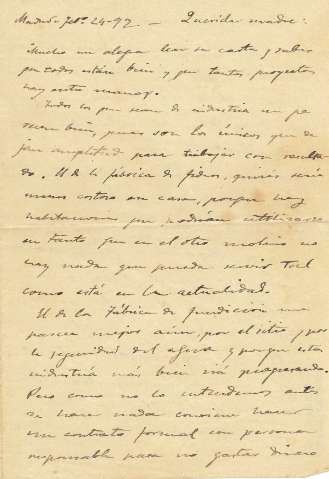 Madrid Feb.º 24-92 - Querida madre:
Mucho me alegra leer su carta y saber
que todos están bien y que tantos proyectos
hay entre manos.
Todos los que sean de industria me pa
recen bien, pues son los únicos que de
jan amplitud para trabajar con resulta-
do. El de la fábrica de fideos, quizás sería
menos costoso en casa, porque hay
habitaciones que podrían utilizarse
en tanto que en el otro molino no
hay nada que pueda servir tal
como está en la actualidad.
El de la Fábrica de fundición me
parece mejor aún, por el sitio y por
la seguridad del agua y porque esta
industria más bien irá prosperando.
Pero como no lo entendemos antes
de hacer nada conviene hacer
un contrato formal con persona
responsable para no gastar dinero